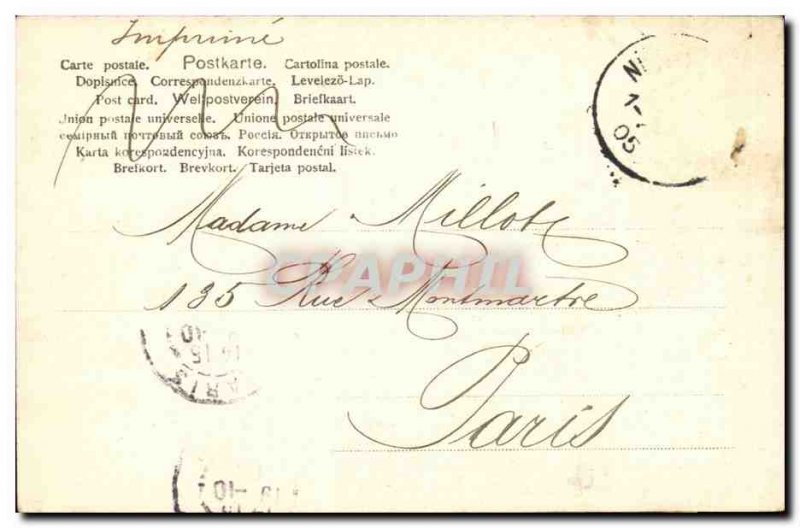 Imprimé
Carte postale. Postkarte. Cartolina postale.
Dopisnice. Correspondenzkarte. Levelező-Lap.
Post card. Weltpostverein. Briefkaart.
Union postale universelle. Unione postale universale
семірный почтовый союзъ. Россія. Открытое письмо
Karta korespondencyjna. Korespondenční lístek.
Brefkort. Brevkort. Tarjeta postal.
1-
05
Madame Millot
CPAPHIL
135 Rue Montmartre
Paris
15
PARIS